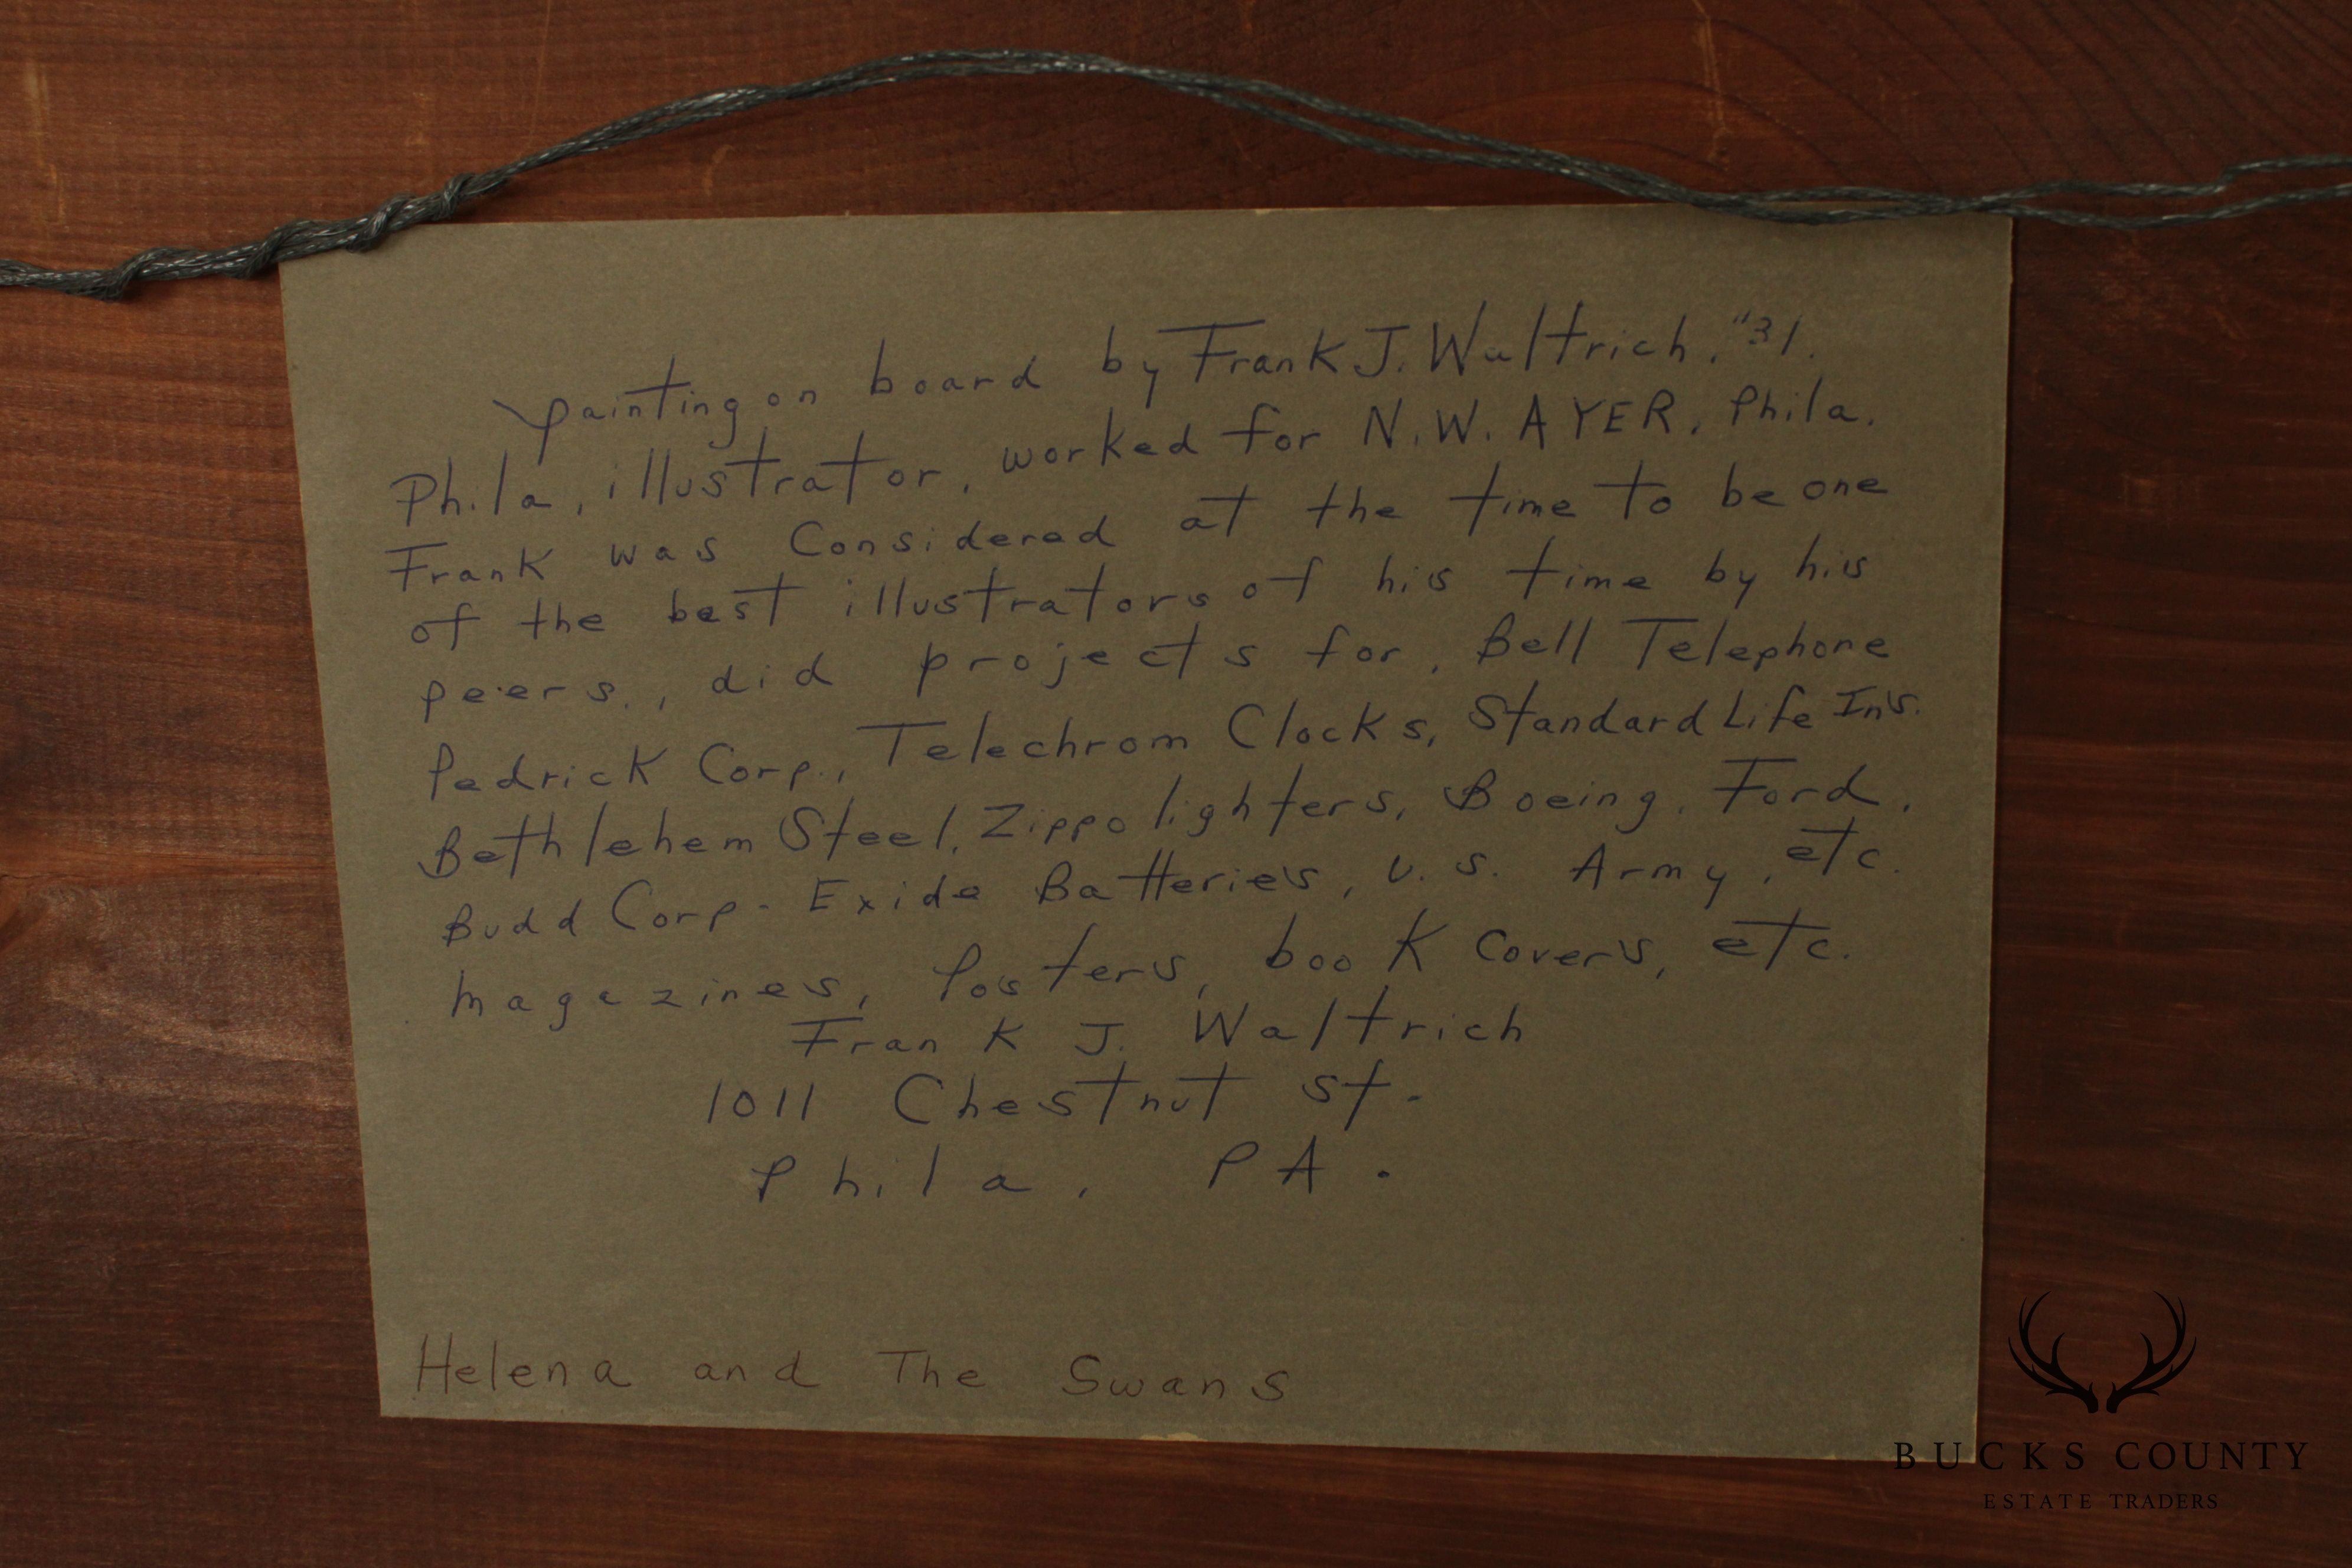 painting on board by Frank J. Waltrich. "31.
Phila, illustrator, worked for N.W. AYER, Phila.
Frank was Considered at the time to be one
of the best illustrators of his time by his
peers, did projects for, Bell Telephone
Pedrick Corp., Telechrom Clocks, Standard Life Ins.
Bethlehem Steel, Zippo lighters, Boeing, Ford,
Budd Corp. Exide Batteries, U.S. Army, etc.
magazines, Posters, book Covers, etc.
Frank J. Waltrich
1011 Chestnut St.
Phila, PA.
Helena and The Swans
BUCKS COUNTY
ESTATE TRADERS